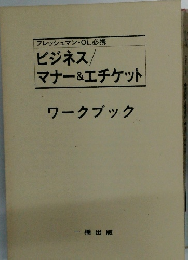 フレッシュマン・OL必携
ビジネス/
マナー&エチケット
ワークブック
出版